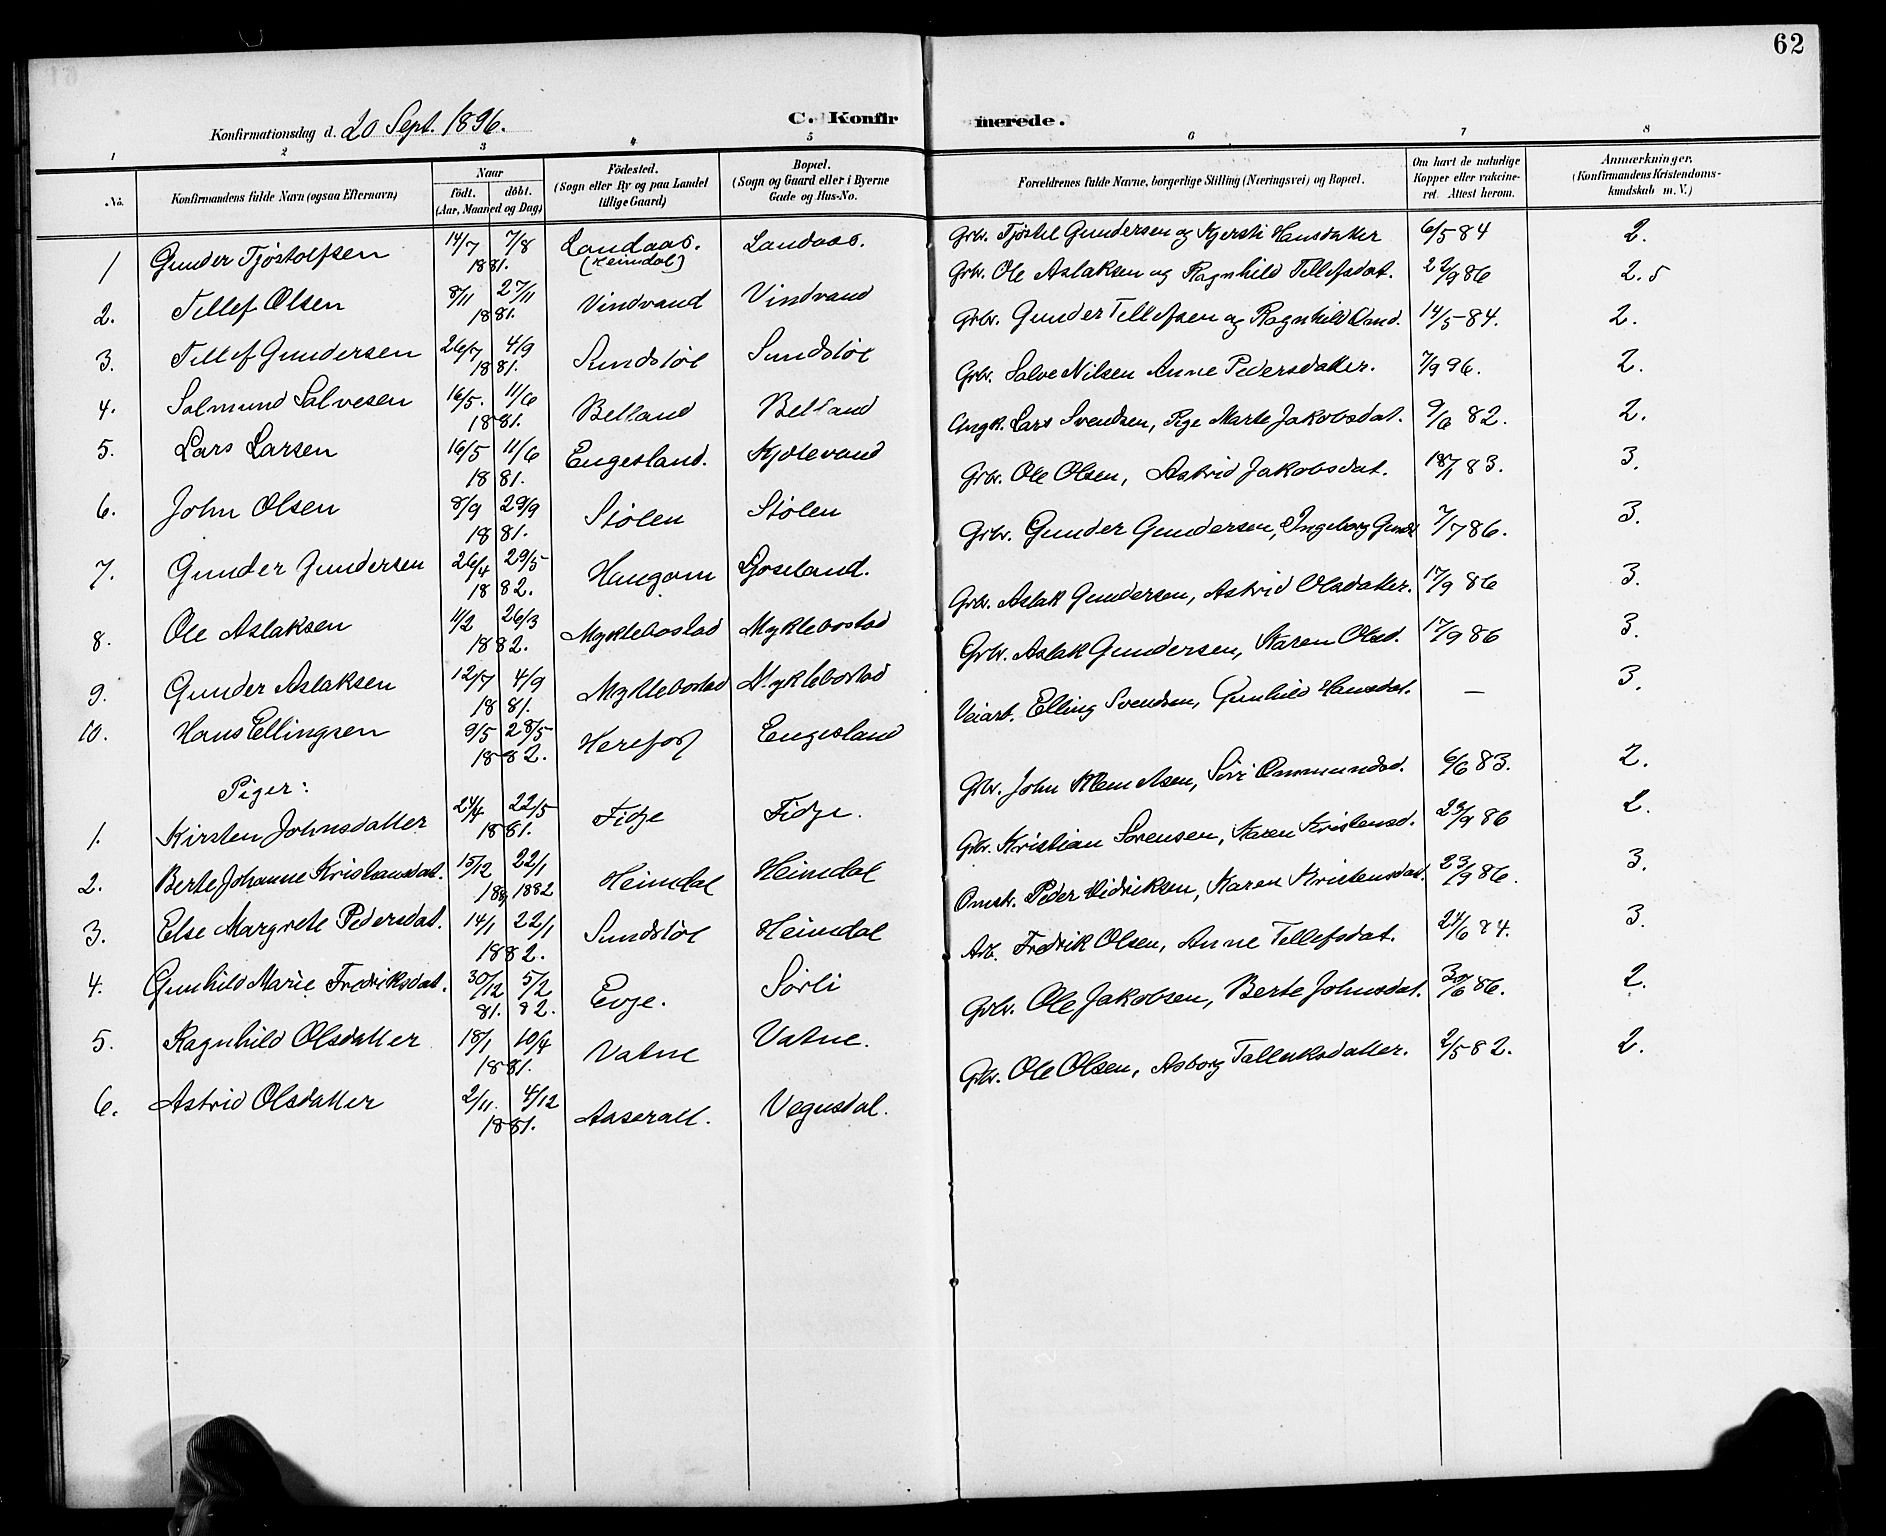 62
Konfirmationsdag d. 20 Sept. 1896. C. Konfirmerede.
1 2 3 4 5 6 7 8
No. Konfirmandens fulde Navn (ogsaa Efternavn) Naar født. døbt. (Aar, Maaned og Dag) Fødested. (Sogn eller By og paa Landet tillige Gaard) Bopæl. (Sogn og Gaard eller i Byerne Gade og Hus-No. Forældrenes fulde Navne, borgerlige Stilling (Næringsvei) og Bopæl. Om havt de naturlige Kopper eller vakcineret. Attest herom. Anmærkninger, (Konfirmandens Kristendomskundskab m. V.)
1 Gunder Tjøstolfsen 14/7 7/8 1881. Landaas. (Heimdal) Landaas. Grbr. Tjøstel Gundersen og Kjersti Hansdatter 6/5 84 2.
2. Tellef Olsen 8/11 27/11 1881. Vindvand Vindvand Grbr. Ole Aslaksen og Ragnhild Tellefsdat. 22/9 86 2.5
3. Tellef Gundersen 26/7 4/9 1881. Sundstøl Sundstøl Grbr. Gunder Tellefsen og Ragnhild 14/5 84. 2.
4. Salmund Salvesen 16/5. 11/6 1881. Belland Belland Grbr. Salve Nilsen Anne Pedersdatter. 7/9 96. 2.
5. Lars Larsen 16/5 11/6 1881. Engesland. Kjølevand Ungk. Lars Svendsen, Pige Marte Jakobsdat. 9/6 82. 2.
6. John Olsen 8/9 29/9 1881. Stølen Stølen Grbr. Ole Olsen, Astrid Jakobsdat. 18/7 83. 3.
7. Gunder Gundersen 26/4 29/5 1882. Haugom Gjoseland. Grbr. Gunder Gundersen, Ingeborg Gunds 7/7 86. 3.
8. Ole Aslaksen 1/2 26/3 1882. Myklebostad Myklebostad Grbr. Aslak Gundersen, Astrid Olsdatter. 17/9 86 3.
9. Gunder Aslaksen 12/7 4/9 1881. Myklebostad Myklebostad Grbr. Aslak Gundersen, Karen Olsd. 17/9 86 3.
10. Hans Ellingsen 9/5 28/5 1882. Herefos Engesland Veiarb. Elling Svendsen, Gunhild Hansdat. — 3.
Piger:
1. Kirsten Johnsdatter 24/4 22/5 1881. Fidje Fidje. Grbr. John Klemetsen, Siri Ommundsd. 6/6 83. 2.
2. Berte Johanne Kristiansdat. 15/12 22/1 1882 Heimdal Heimdal Grbr. Kristian Sørensen, Karen Kristensd. 23/9 86 2.
3. Else Margrete Pedersdat. 14/1 22/1 1882. Sundstøl Heimdal Omstr. Peder Didriksen, Karen Kristensdat. 23/9 86. 3.
4. Gunhild Marie Fredriksdat. 30/12 81. 5/2 82. Evje. Sørli Arb. Fredrik Olsen, Anne Tellefsdat. 24/6 84. 3.
5. Ragnhild Olsdatter 18/1 10/4 1881. Vatne Vatne. Grbr. Ole Jakobsen, Berte Johnsdat. 30/6 86. 2.
6. Astrid Olsdatter 2/11. 4/12 1881. Aaseral. Vegusdal. Grbr. Ole Olsen, Asborg Talleksdatter. 2/5 82. 2.